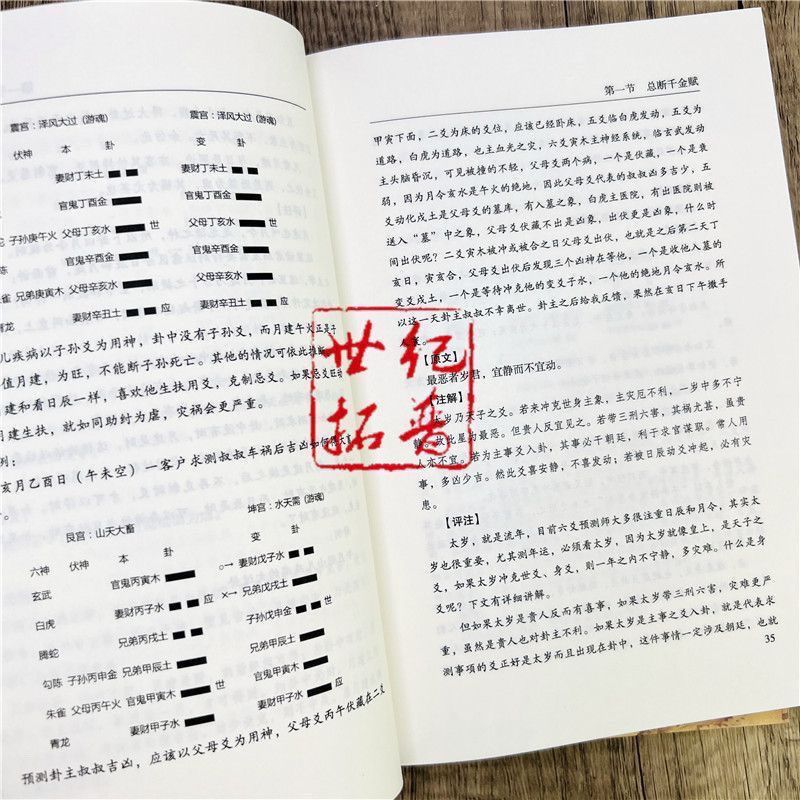 震宫：泽风大过 (游魂) 震宫：泽风大过 (游魂)
伏神 本 卦 变 卦
妻财丁未土 妻财丁未土
官鬼丁酉金 官鬼丁酉金
子孙庚午火 父母丁亥水 世 父母丁亥水 世
官鬼辛酉金 官鬼辛酉金
朱雀 兄弟庚寅木 父母辛亥水 父母辛亥水
青龙 妻财辛丑土 应 妻财辛丑土 应
儿疾病以子孙爻为用神，卦中没有子孙爻，而月建午火正是子
值月建，为旺，不能断子孙死亡。其他的情况可依此推断
建和看日辰一样，喜欢他生扶用爻，克制忌爻。如果忌爻旺动
月建生扶，就如同助纣为虐，灾祸会更严重。
例：
亥月乙酉日（午未空）一客户求测叔叔车祸后吉凶如何
艮宫：山天大畜 坤宫：水天需 (游魂)
六神 伏神 本 卦 变 卦
玄武 官鬼丙寅木 ○→ 妻财戊子水
白虎 妻财丙子水 应 ×→ 兄弟戊戌土
腾蛇 兄弟丙戌土 子孙戊申金 世
勾陈 子孙丙申金 兄弟甲辰土 兄弟甲辰土
朱雀 父母丙午火 官鬼甲寅木 世 官鬼甲寅木
青龙 妻财甲子水 妻财甲子水 应
预测卦主叔叔吉凶，应该以父母爻为用神，父母爻丙午伏藏在二爻
第一节 总断千金赋
甲寅下面，二爻为床的爻位，应该已经卧床，五爻临白虎发动，五爻为
道路，白虎为道路，也主血光之灾，六爻寅木主神经系统，临玄武发动
主头脑昏沉，可见被撞的不轻，父母爻两个病，一个是伏藏，一个是衰
弱，因为月令亥水是午火的绝地，因此父母爻代表的叔叔凶多吉少，五
爻动化戊土是父母爻的墓库，有入墓之象，白虎主医院，有出医院则被
送入“墓”中之象，父母爻伏藏不出是凶象，出伏更是凶象，什么时
间出伏呢？二爻寅木被冲或被合之日父母爻出伏，也就是之后第二天丁
亥日，寅亥合，父母爻出伏后发现三个凶神在等他，一个是收他入墓的
变爻戌土，一个是等待冲克他的变爻子水，一个他的绝地月令亥水。所
以这一天卦主叔叔不幸离世。卦主之后给我反馈，果然在亥日下午撒手
人寰。
【原文】
最恶者岁君，宜静而不宜动。
【注解】
太岁乃天子之爻。若来冲克世身主象，主灾厄不利，一岁中多不宁
静。故此星为最恶。但贵人反宜见之。若带三刑六害，其祸尤甚，虽贵
人亦不宜。若为主事爻入卦，其事必干朝廷，利于求官谋职。常人用
事，多凶少吉。然此爻喜安静，不喜发动；若被日辰动爻冲起，必有灾
患。
【评注】
太岁，就是流年，目前六爻预测师大多很注重日辰和月令，其实太
岁也很重要，尤其测年运，必须看太岁，因为太岁就像皇上，是天子之
爻，如果太岁冲克世爻、身爻，则一年之内不宁静，多灾难。什么是身
爻呢？下文有详细讲解。
但如果太岁是贵人反而有喜事，如果太岁带三刑六害，灾难更严
重，虽然是贵人也对卦主不利。如果太岁是主事之爻入卦，就是代表求
测事项的爻正好是太岁而且出现在卦中，这件事情一定涉及朝廷，也就
35
世纪
拓普